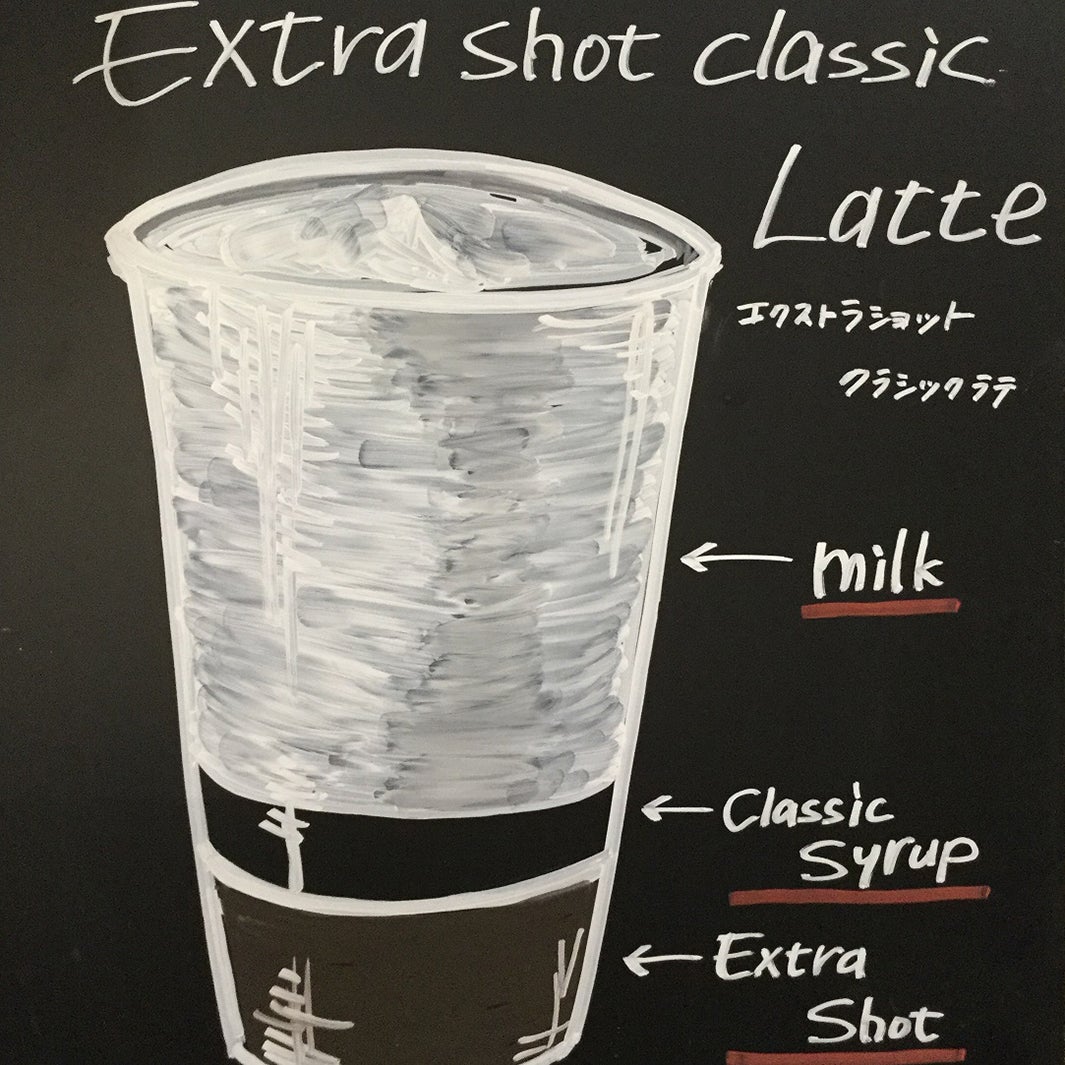 Extra shot classic
Latte
エクストラショット
クラシックラテ
milk
Classic
Syrup
Extra
Shot